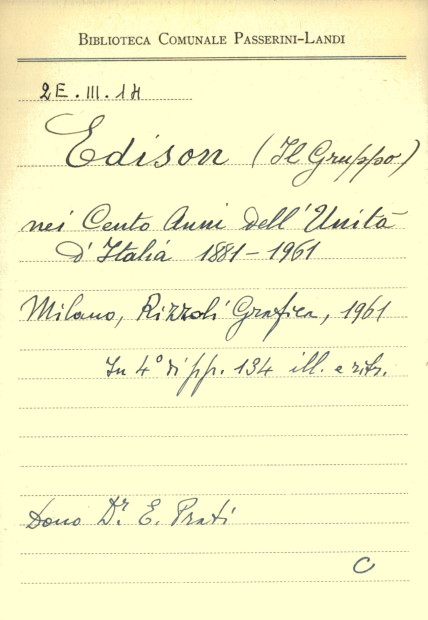 BIBLIOTECA COMUNALE PASSERINI-LANDI
2E.III.14
Edison (Il Gruppo)
nei Cento Anni dell'Unità
d'Italia 1881-1961
Milano, Rizzoli Grafica, 1961
In 4° di pp. 134 ill. e ritr.
Dono Dr. E. Prati
C